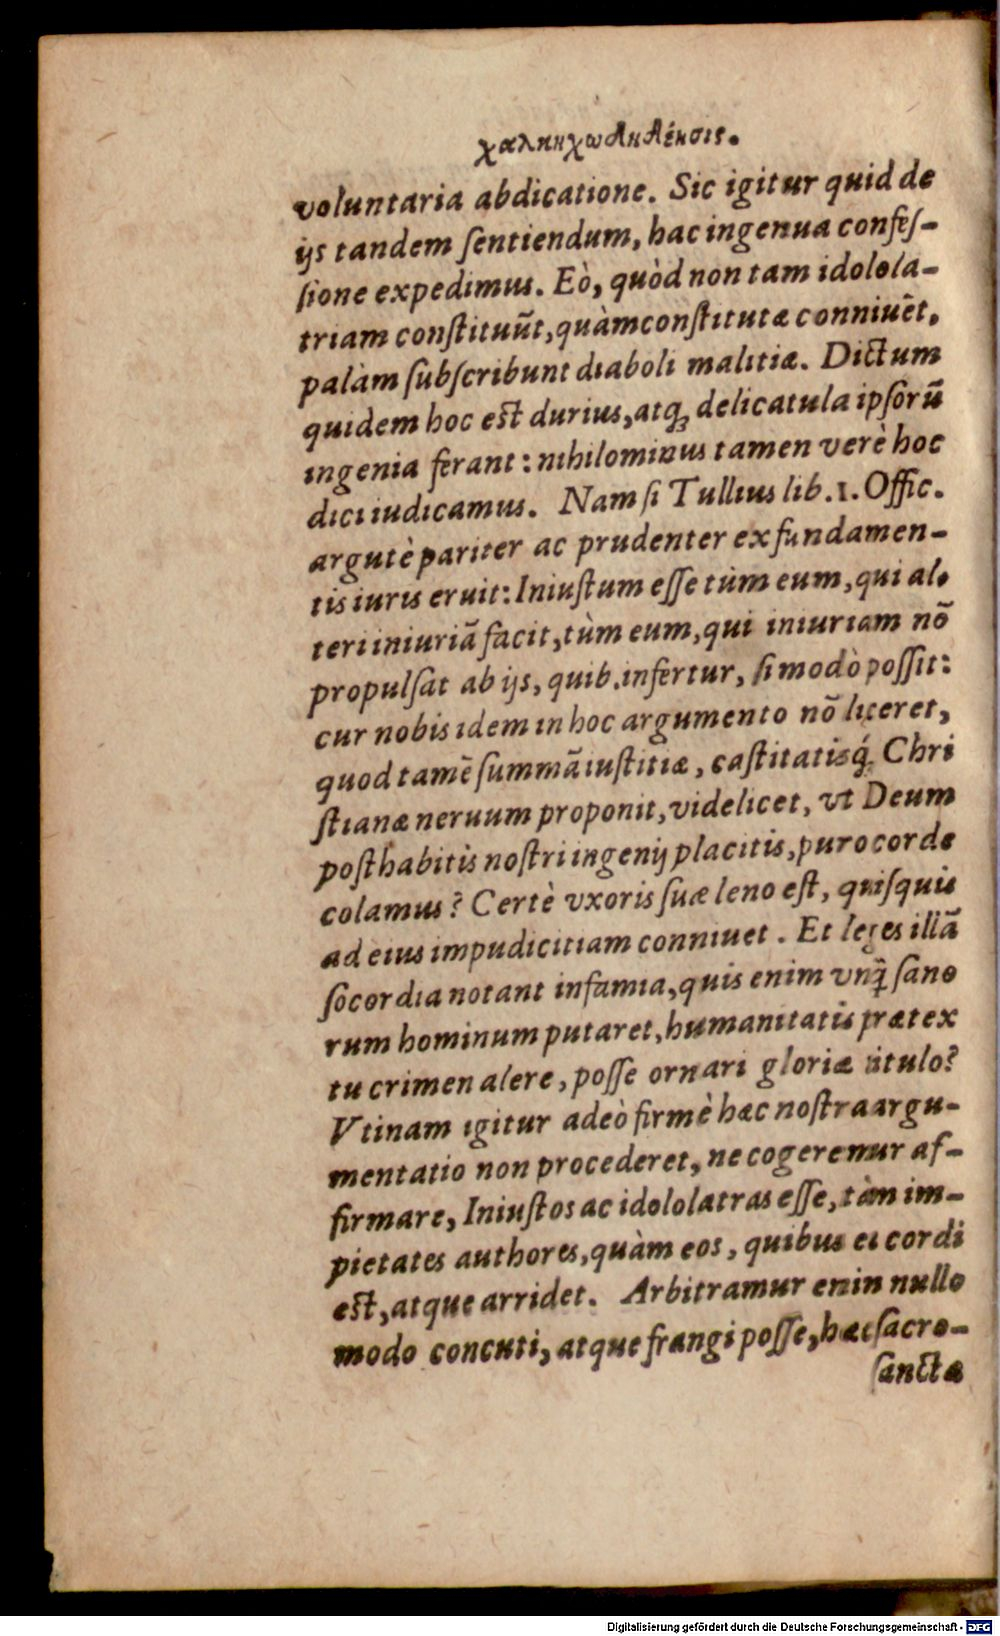 voluntaria abdicatione. Sic igitur quid de
ijs tandem ſentiendum, hac ingenua confeſ-
ſione expedimus. Eò, quòd non tam idolola-
triam conſtituũt, quàm conſtitutæ conniuẽt,
palàm ſubſcribunt diaboli malitiæ. Dictum
quidem hoc eſt durius, atq; delicatula ipſorũ
ingenia ferant: nihilominus tamen verè hoc
dici iudicamus. Nam ſi Tullius lib. 1. Offic.
argutè pariter ac prudenter ex fundamen-
tis iuris eruit: Iniuſtum eſſe tùm eum, qui al-
teri iniuriã facit, tùm eum, qui iniuriam nõ
propulſat ab ijs, quib. infertur, ſi modò poſſit:
cur nobis idem in hoc argumento nõ liceret,
quod tamẽ ſummã iuſtitiæ, caſtitatisq́; Chri
ſtianæ neruum proponit, videlicet, vt Deum
poſthabitis noſtri ingenij placitis, puro corde
colamus? Certè vxoris ſuæ leno eſt, quiſquis
ad eius impudicitiam conniuet. Et leges illã
ſocordia notant infamia, quis enim vnq̃ ſano
rum hominum putaret, humanitatis prætex
tu crimen alere, poſſe ornari gloriæ titulo?
Vtinam igitur adeò firmè hæc noſtra argu-
mentatio non procederet, ne cogeremur af-
firmare, Iniuſtos ac idololatras eſſe, tàm im-
pietates authores, quàm eos, quibus ei cordi
eſt, atque arridet. Arbitramur enin nullo
modo concuti, atque frangi poſſe, hæc ſacro-
ſanctæ
Digitalisierung gefördert durch die Deutsche Forschungsgemeinschaft - DFG